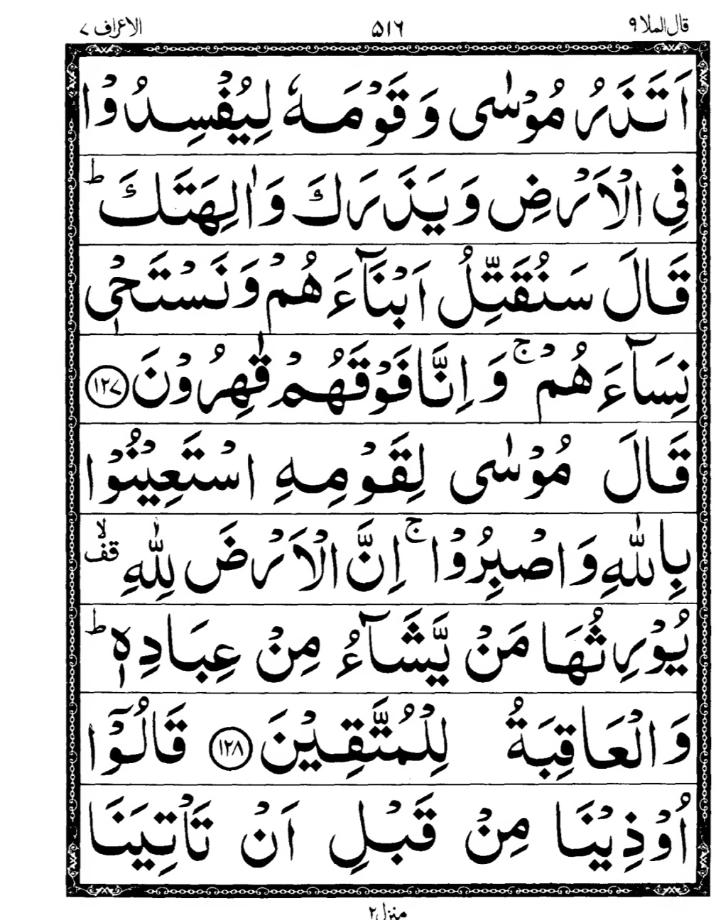 قال الملا ٩ ٥١٦ الاعراف ٧
اَتَذَرُ مُوْسٰى وَ قَوْمَهٗ لِيُفْسِدُوْا
فِي الْاَرْضِ وَ يَذَرَكَ وَ اٰلِهَتَكَ ؕ
قَالَ سَنُقَتِّلُ اَبْنَآءَ هُمْ وَ نَسْتَحْيٖ
نِسَآءَ هُمْ ۚ وَ اِنَّا فَوْقَهُمْ قٰهِرُوْنَ ﴿١٢٧﴾
قَالَ مُوْسٰى لِقَوْمِهِ اسْتَعِيْنُوْا
بِاللّٰهِ وَ اصْبِرُوْا ۚ اِنَّ الْاَرْضَ لِلّٰهِ ۙ قف
يُوْرِثُهَا مَنْ يَّشَآءُ مِنْ عِبَادِهٖ ؕ
وَ الْعَاقِبَةُ لِلْمُتَّقِيْنَ ﴿١٢٨﴾ قَالُوْٓا
اُوْذِيْنَا مِنْ قَبْلِ اَنْ تَاْتِيَنَا
منزل ٢